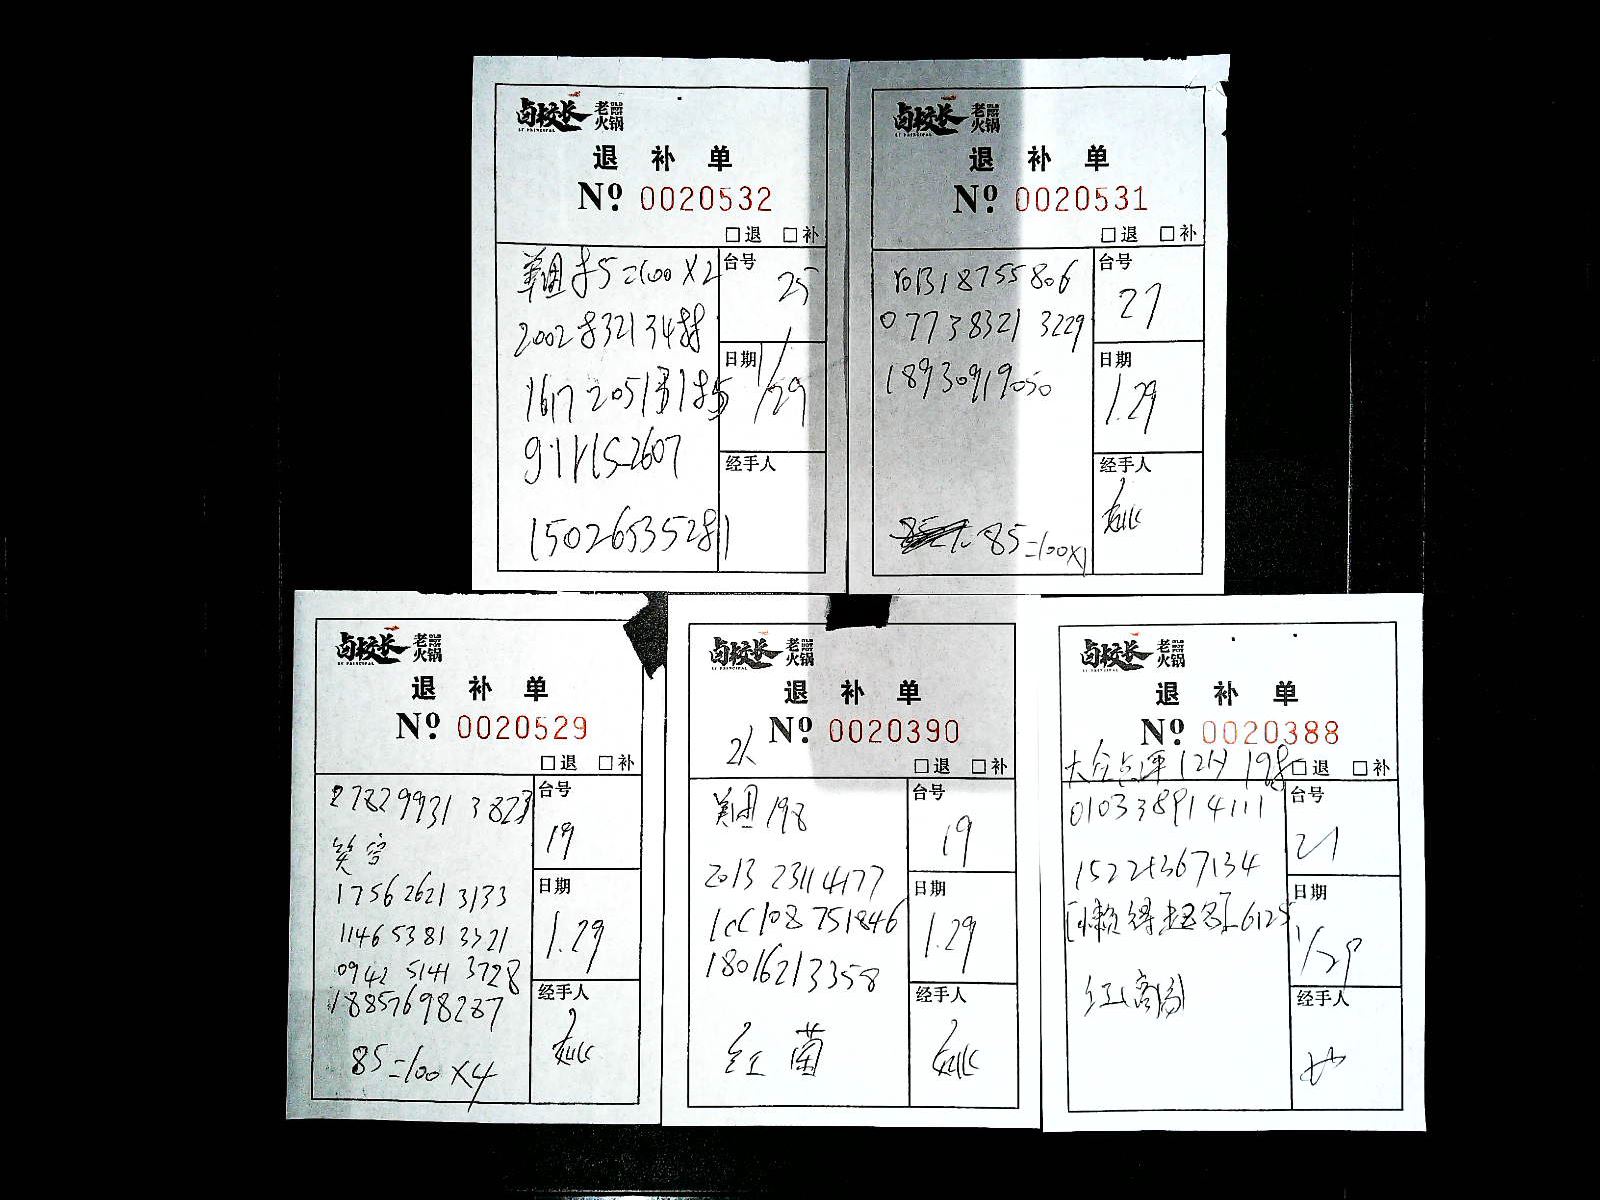 卤校长 老火锅
LU PRINCIPAL
退 补 单
Nº 0020532
□退 □补
美团 85=100×2
2002 8321 3488
台号
25
日期
1/29
1617 2051
9111152607
经手人
15026535281
卤校长 老火锅
LU PRINCIPAL
退 补 单
Nº 0020531
□退 □补
1013 18755806
077 38321 3229
18930919050
台号
27
日期
1.29
经手人
85=100×1
卤校长 老火锅
LU PRINCIPAL
退 补 单
Nº 0020529
□退 □补
27829931 3823
笑容
17562621 3133
1146 5381 3321
0942 5141 3728
18857698287
85=100×4
台号
19
日期
1.29
经手人
卤校长 老火锅
LU PRINCIPAL
退 补 单
2人
Nº 0020390
□退 □补
美团 198
2013 2311 4177
108 751846
18016213358
红 菌
台号
19
日期
1.29
经手人
卤校长 老火锅
LU PRINCIPAL
退 补 单
Nº 0020388
□退 □补
大众点评 12H 198
010338914111
15221367134
懒得起名 6125
台号
21
日期
1/29
经手人